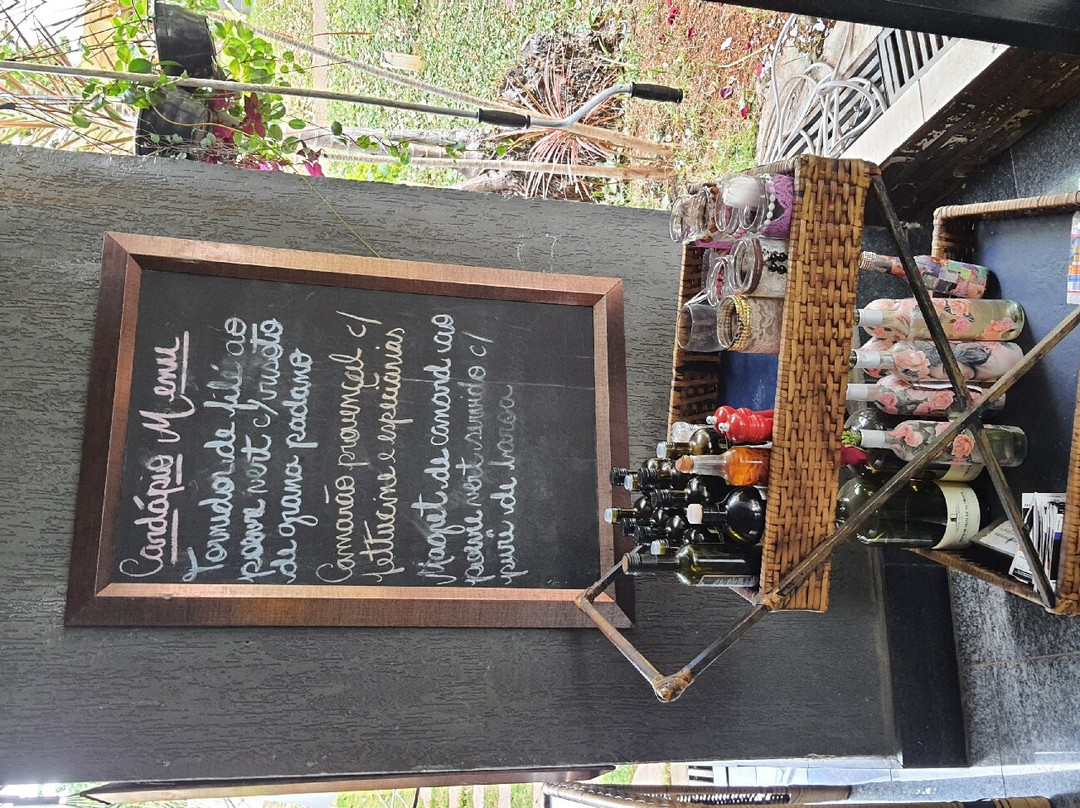 Cardápio Menu
Tornedor de filé ao
poivre vert c/ risoto
de grana padano
Camarão provençal c/
fettucine e especiarias
Magret de canard ao
poivre vert servido c/
purê de baroa